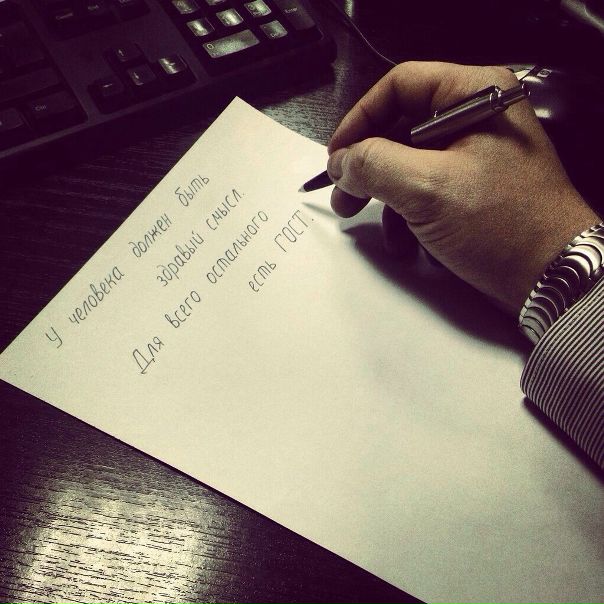 У человека должен быть
здравый смысл.
Для всего остального
есть ГОСТ.